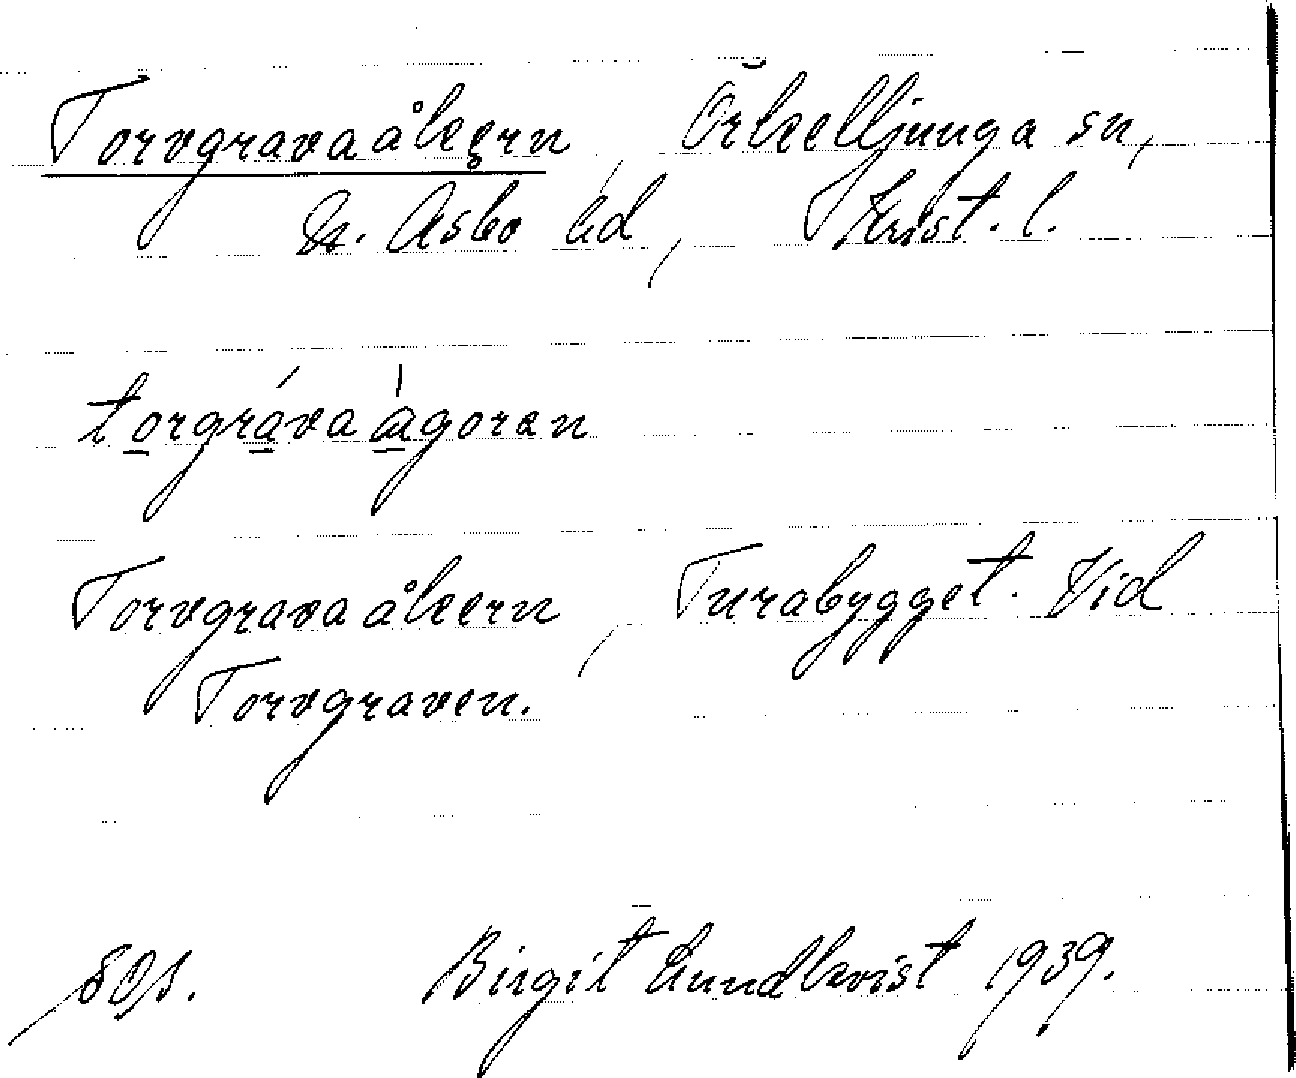 Torvgravaåkern, Örkelljunga sn,
N. Åsbo hd, Krist. l.
torgráva ågoran
Torvgravaåkern, Turabygget. Vid
Torvgraven.
Birgit Lundkvist 1939.